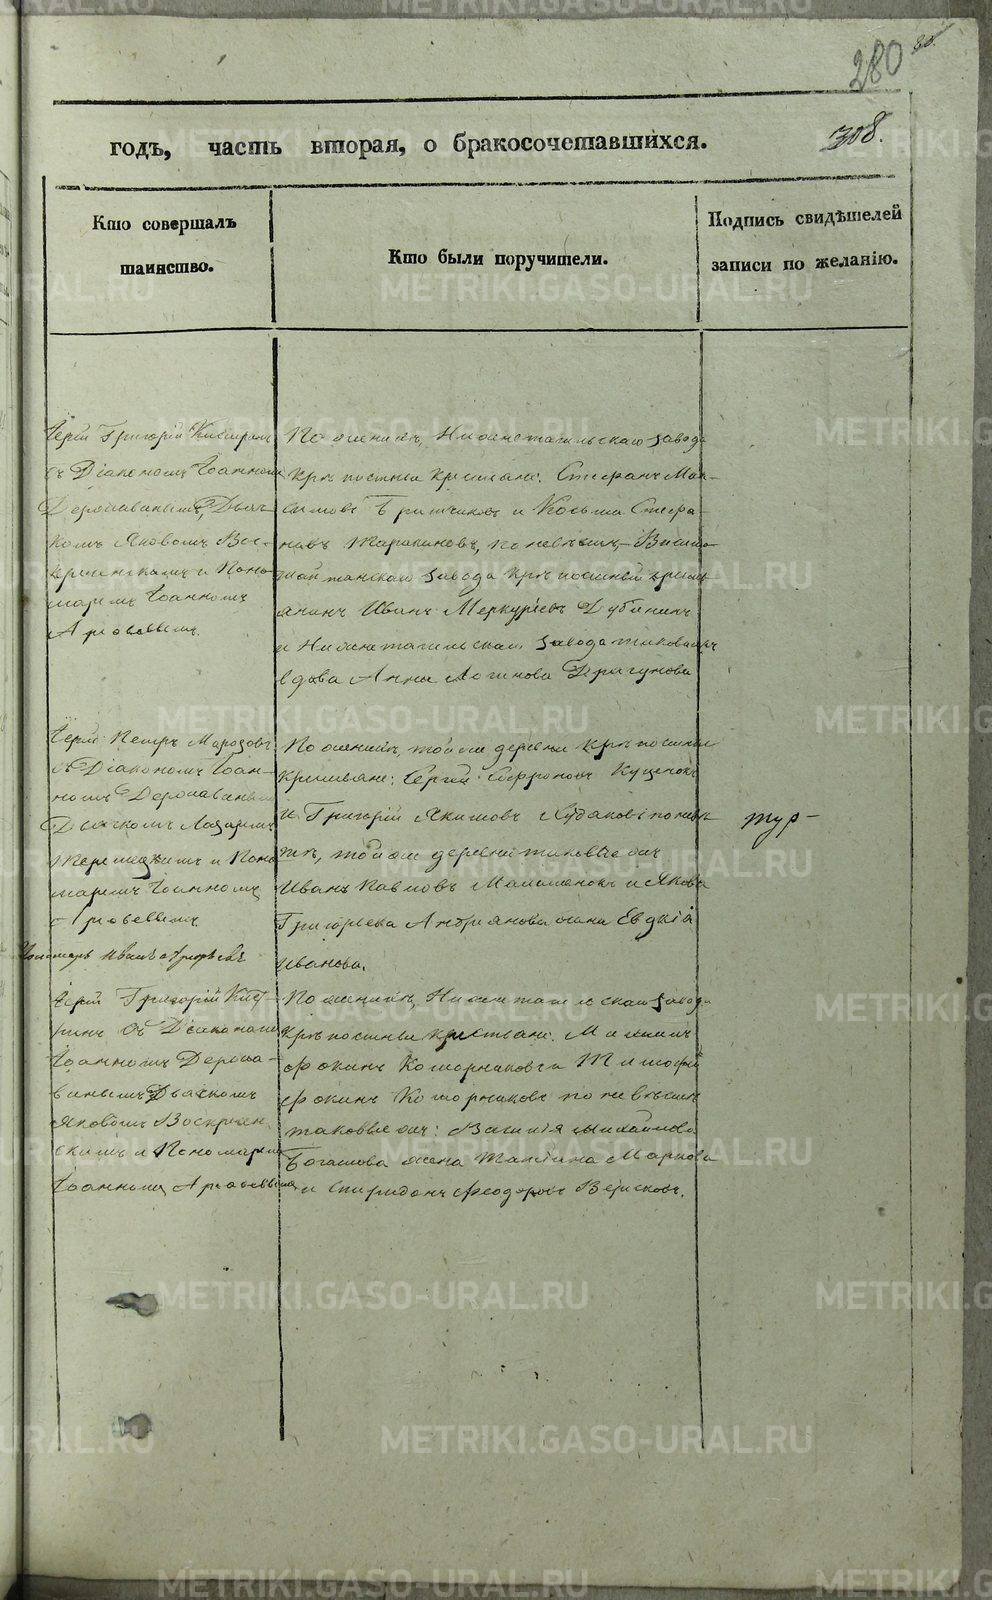 280
308.
годъ, часть вторая, о бракосочетавшихся.
Кто совершалъ
таинство.
Кто были поручители.
Подпись свидѣтелей
записи по желанію.
Іерей Григорій
съ Діакономъ Іоанномъ
Державинымъ, Дьяч-
комъ Яковомъ Вос-
кресенскимъ и Поно-
маремъ Іоанномъ
Арефьевымъ.
По женихѣ, Нижнетагильскаго завода
крѣпостные крестьяне: Стефанъ Мак-
симовъ и Косьма Стефа-
новъ Таракановъ, по невѣстѣ,- Висимо-
шайтанскаго завода крѣпостный кресть-
янинъ Иванъ Меркурьевъ Дубининъ
и Нижнетагильскаго завода таковаяжъ
вдова Анна Логинова Драгунова
Іерей Петръ Морозовъ
съ Діакономъ Іоан-
номъ Державинымъ
Дьячкомъ Лазаремъ
и Поно-
маремъ Іоанномъ
Арефьевымъ.
Пономарь Иванъ Арефьевъ
По женихѣ, тойже деревни крѣпостные
крестьяне: Сергій Софроновъ Куценокъ
и Григорій Якимовъ Худяковъ по невѣс-
тѣ, тойже деревни таковые жъ
Иванъ Павловъ Малышенокъ и Якова
Григорьева Андріянова жена Евдкія
Иванова.
тур-
Іерей Григорій
съ Діакономъ
Іоанномъ Держа-
винымъ Дьячкомъ
Яковомъ Воскресен-
скимъ и Пономаремъ
Іоанномъ Арефьевымъ
По женихѣ, Нижнетагильскаго завода
крѣпостные крестьяне: Максимъ
Фокинъ Коморниковъ и Тимофей
Фокинъ Коморниковъ по невѣстѣ
таковые жъ: Василія Михайлова
Богатова жена Татіана Маркова
и Спиридонъ Феодоровъ